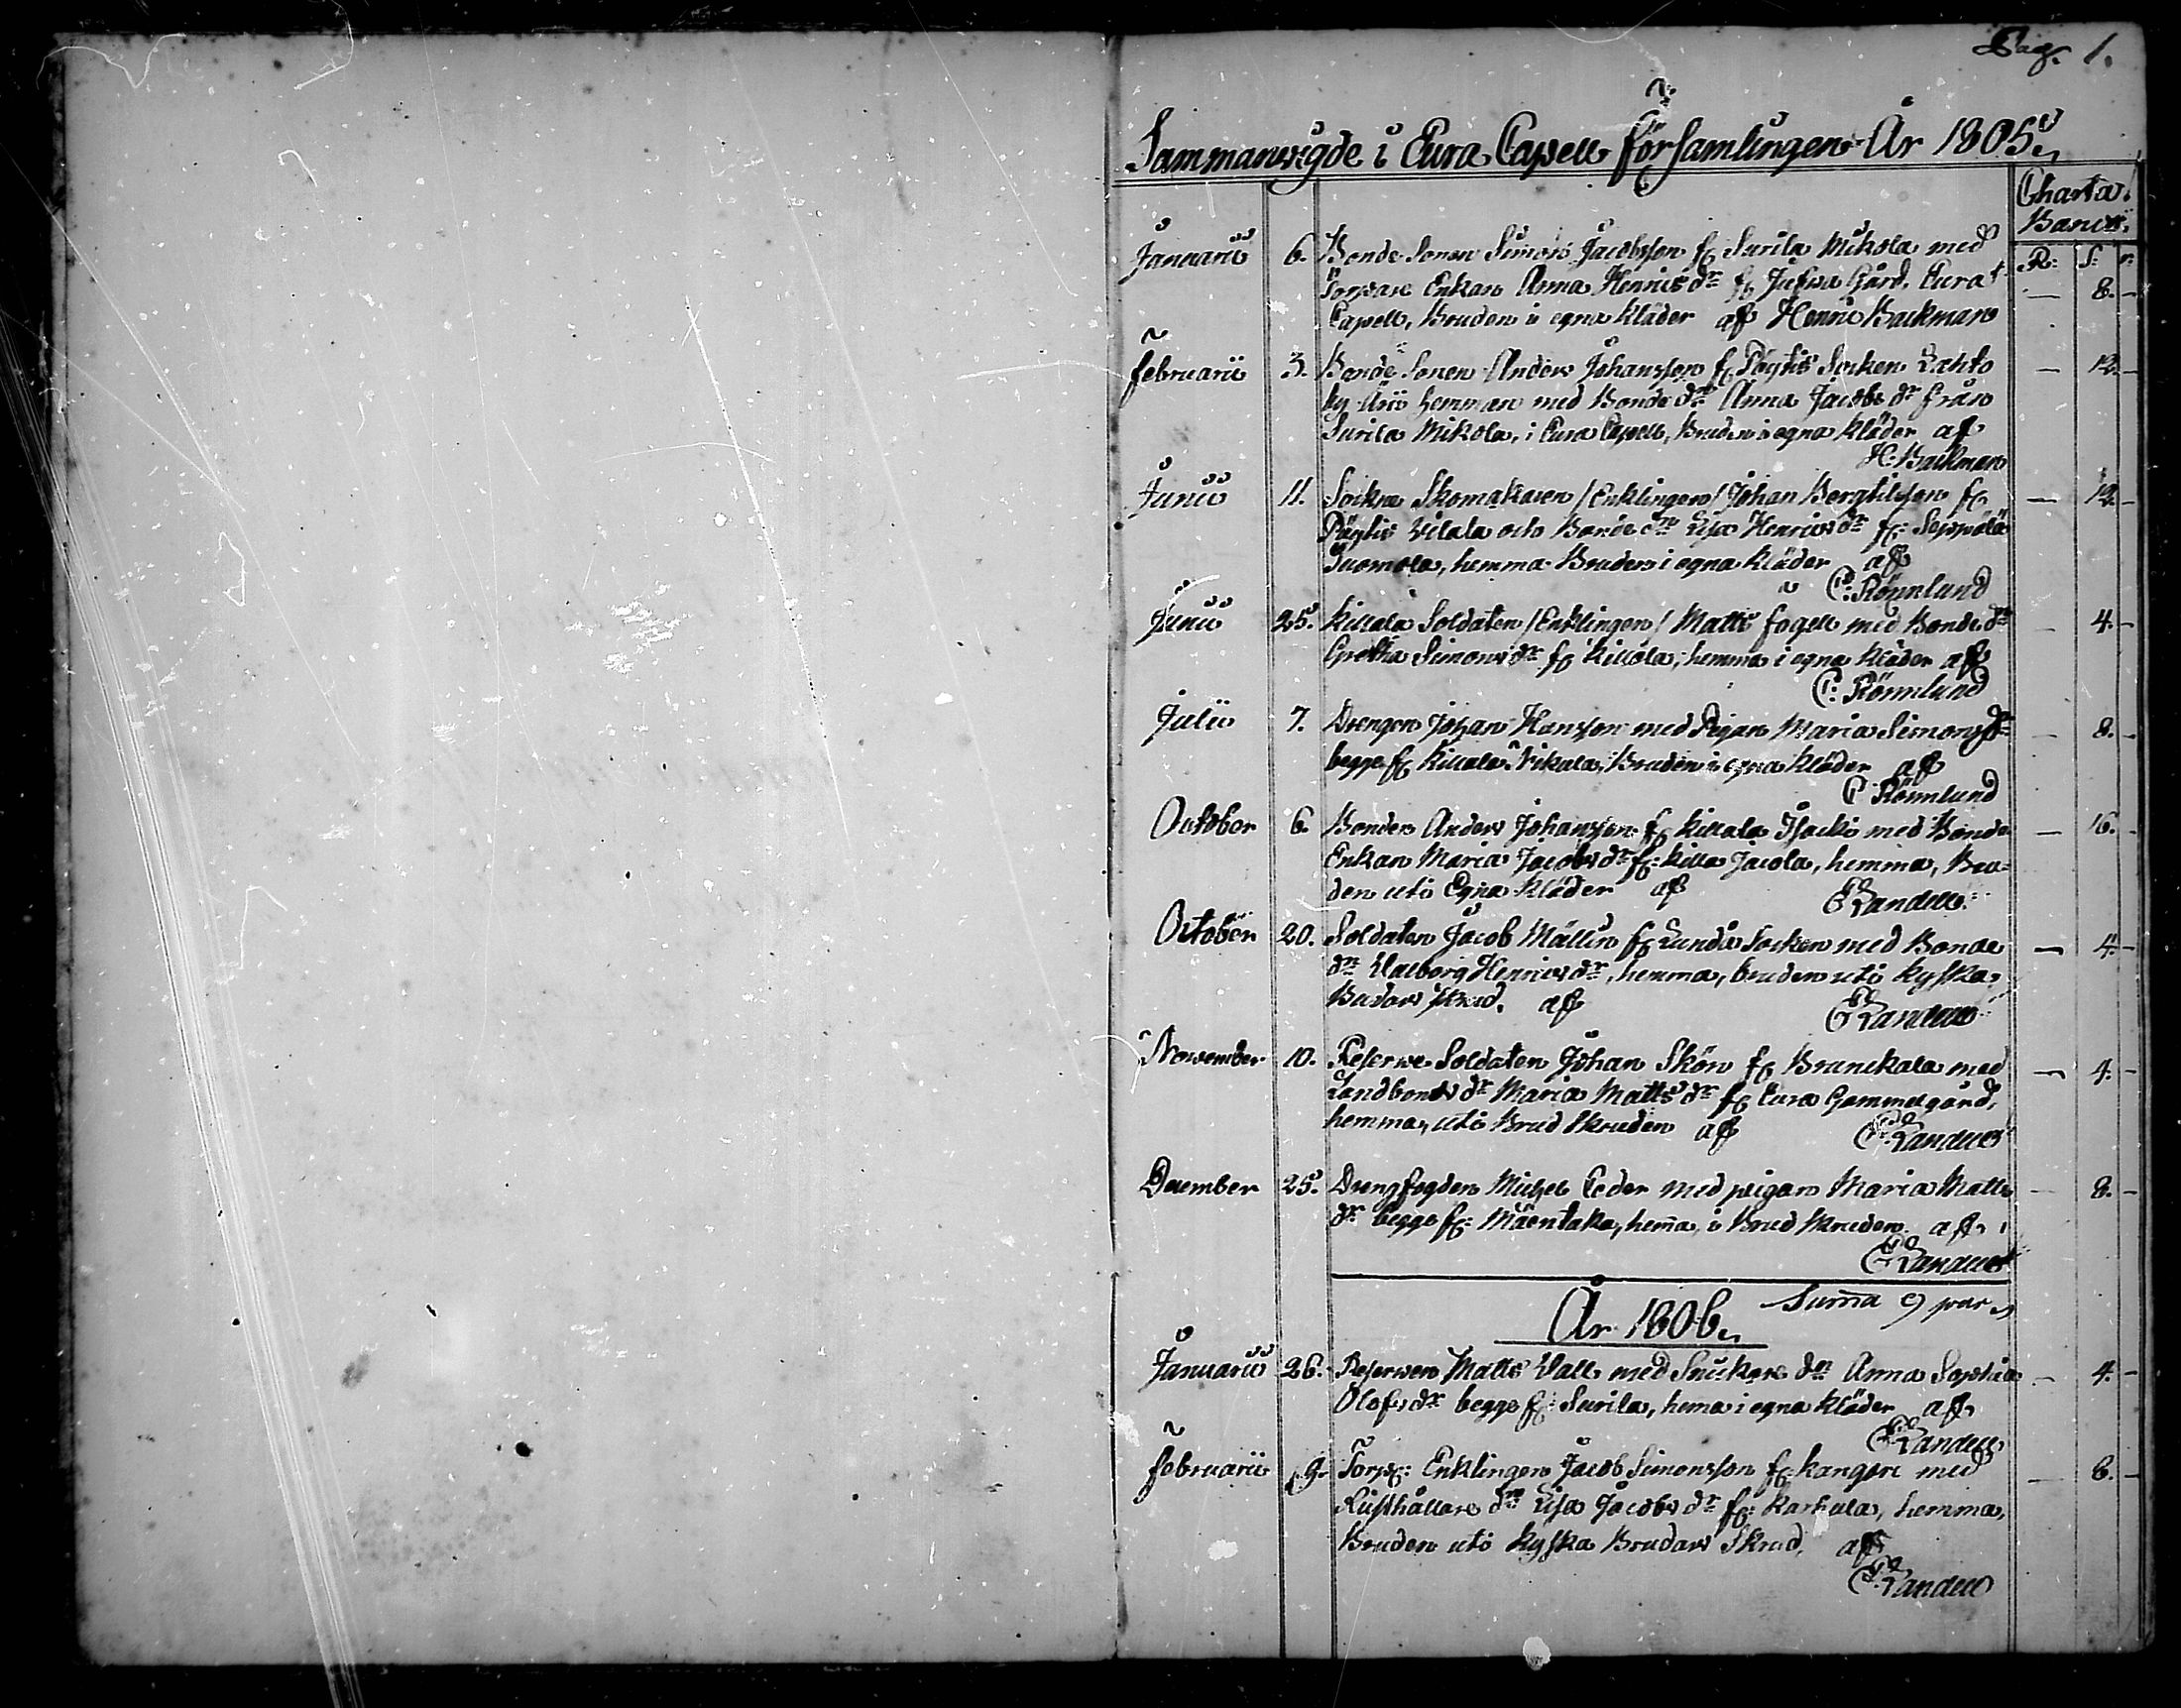 Pag. 1.
Sammanwigde i Eura Capell Församlingen År 1805.
Charta
Banco.
R: S: r:
Januarii 6. Bonde Sonen Simon Jacobsson fr Surila Mikola med
Enkan Anna Henricsdr fr Gård. Eura — 8. –
Capell, Bruden i egna kläder af Henric Backman
Februarii 3. Bonde Sonen Anders Johansson fr Pöytis Socken Lahto — 12. –
by hemman med Bonde dr Anna Jacobs dr från
Surila Mikola, i Eura Capell, Bruden i egna kläder af
H. Backman
Junii 11. Sockne Skomakaren /Enklingen/ Johan Bergtilsson fr — 12. –
Pöytis och Bonde dn Lisa Henricsdr fr: Seppälä
Tuomola, hemma Bruden i egna kläder af
C: Rönnlund
Junii 25. Killala Soldaten /Enklingen/ Matts Fogell med Bonde dn — 4. –
Gretha Simonsdr fr Killala, hemma i egna kläder af
C: Rönnlund
Julii 7. Drengen Johan Hansson med Pigan Maria Simonsdr — 8. –
begge fr Killala Bruden i egna kläder af
C Rönnlund
October 6. Bonden Anders Johansson fr Killala Isacki med Bonde — 16. –
Enkan Maria Jacobsdr fr: Killa Jacola, hemma, Bru-
den uti Egna kläder af Landell
October 20. Soldaten Jacob Mällin fr Lundo Socken med Bonde — 4. –
dn Walborg Henricsdr, hemma, bruden uti kyska
Brudars skrud. af Landell
November 10. Reserwe Soldaten Johan Skön fr Brunckala med — 4. –
Landbonde dr Maria Matts dr fr Eura Gammelgård,
hemma, uti Brud Skruden af Landell
December 25. Drengfogden Michel Ceder med pigan Maria Matts — 8. –
dr begge fr: Mäentaka, hema, i Brud Skruden. af
Landell
Suma 9 par
År 1806.
Januarii 26. Reserwen Matts Wall med Snickare dn Anna Sophia — 4. –
Olofsdr begge fr: Surila, hema i egna kläder af
Landell
Februarii 9. Torp: Enklingen Jacob Simonsson fr: Kangare med — 8. –
Rusthållare dn Lisa Jacobsdr fr: Karhula, hemma,
Bruden uti kyska Brudars Skrud. af
Landell